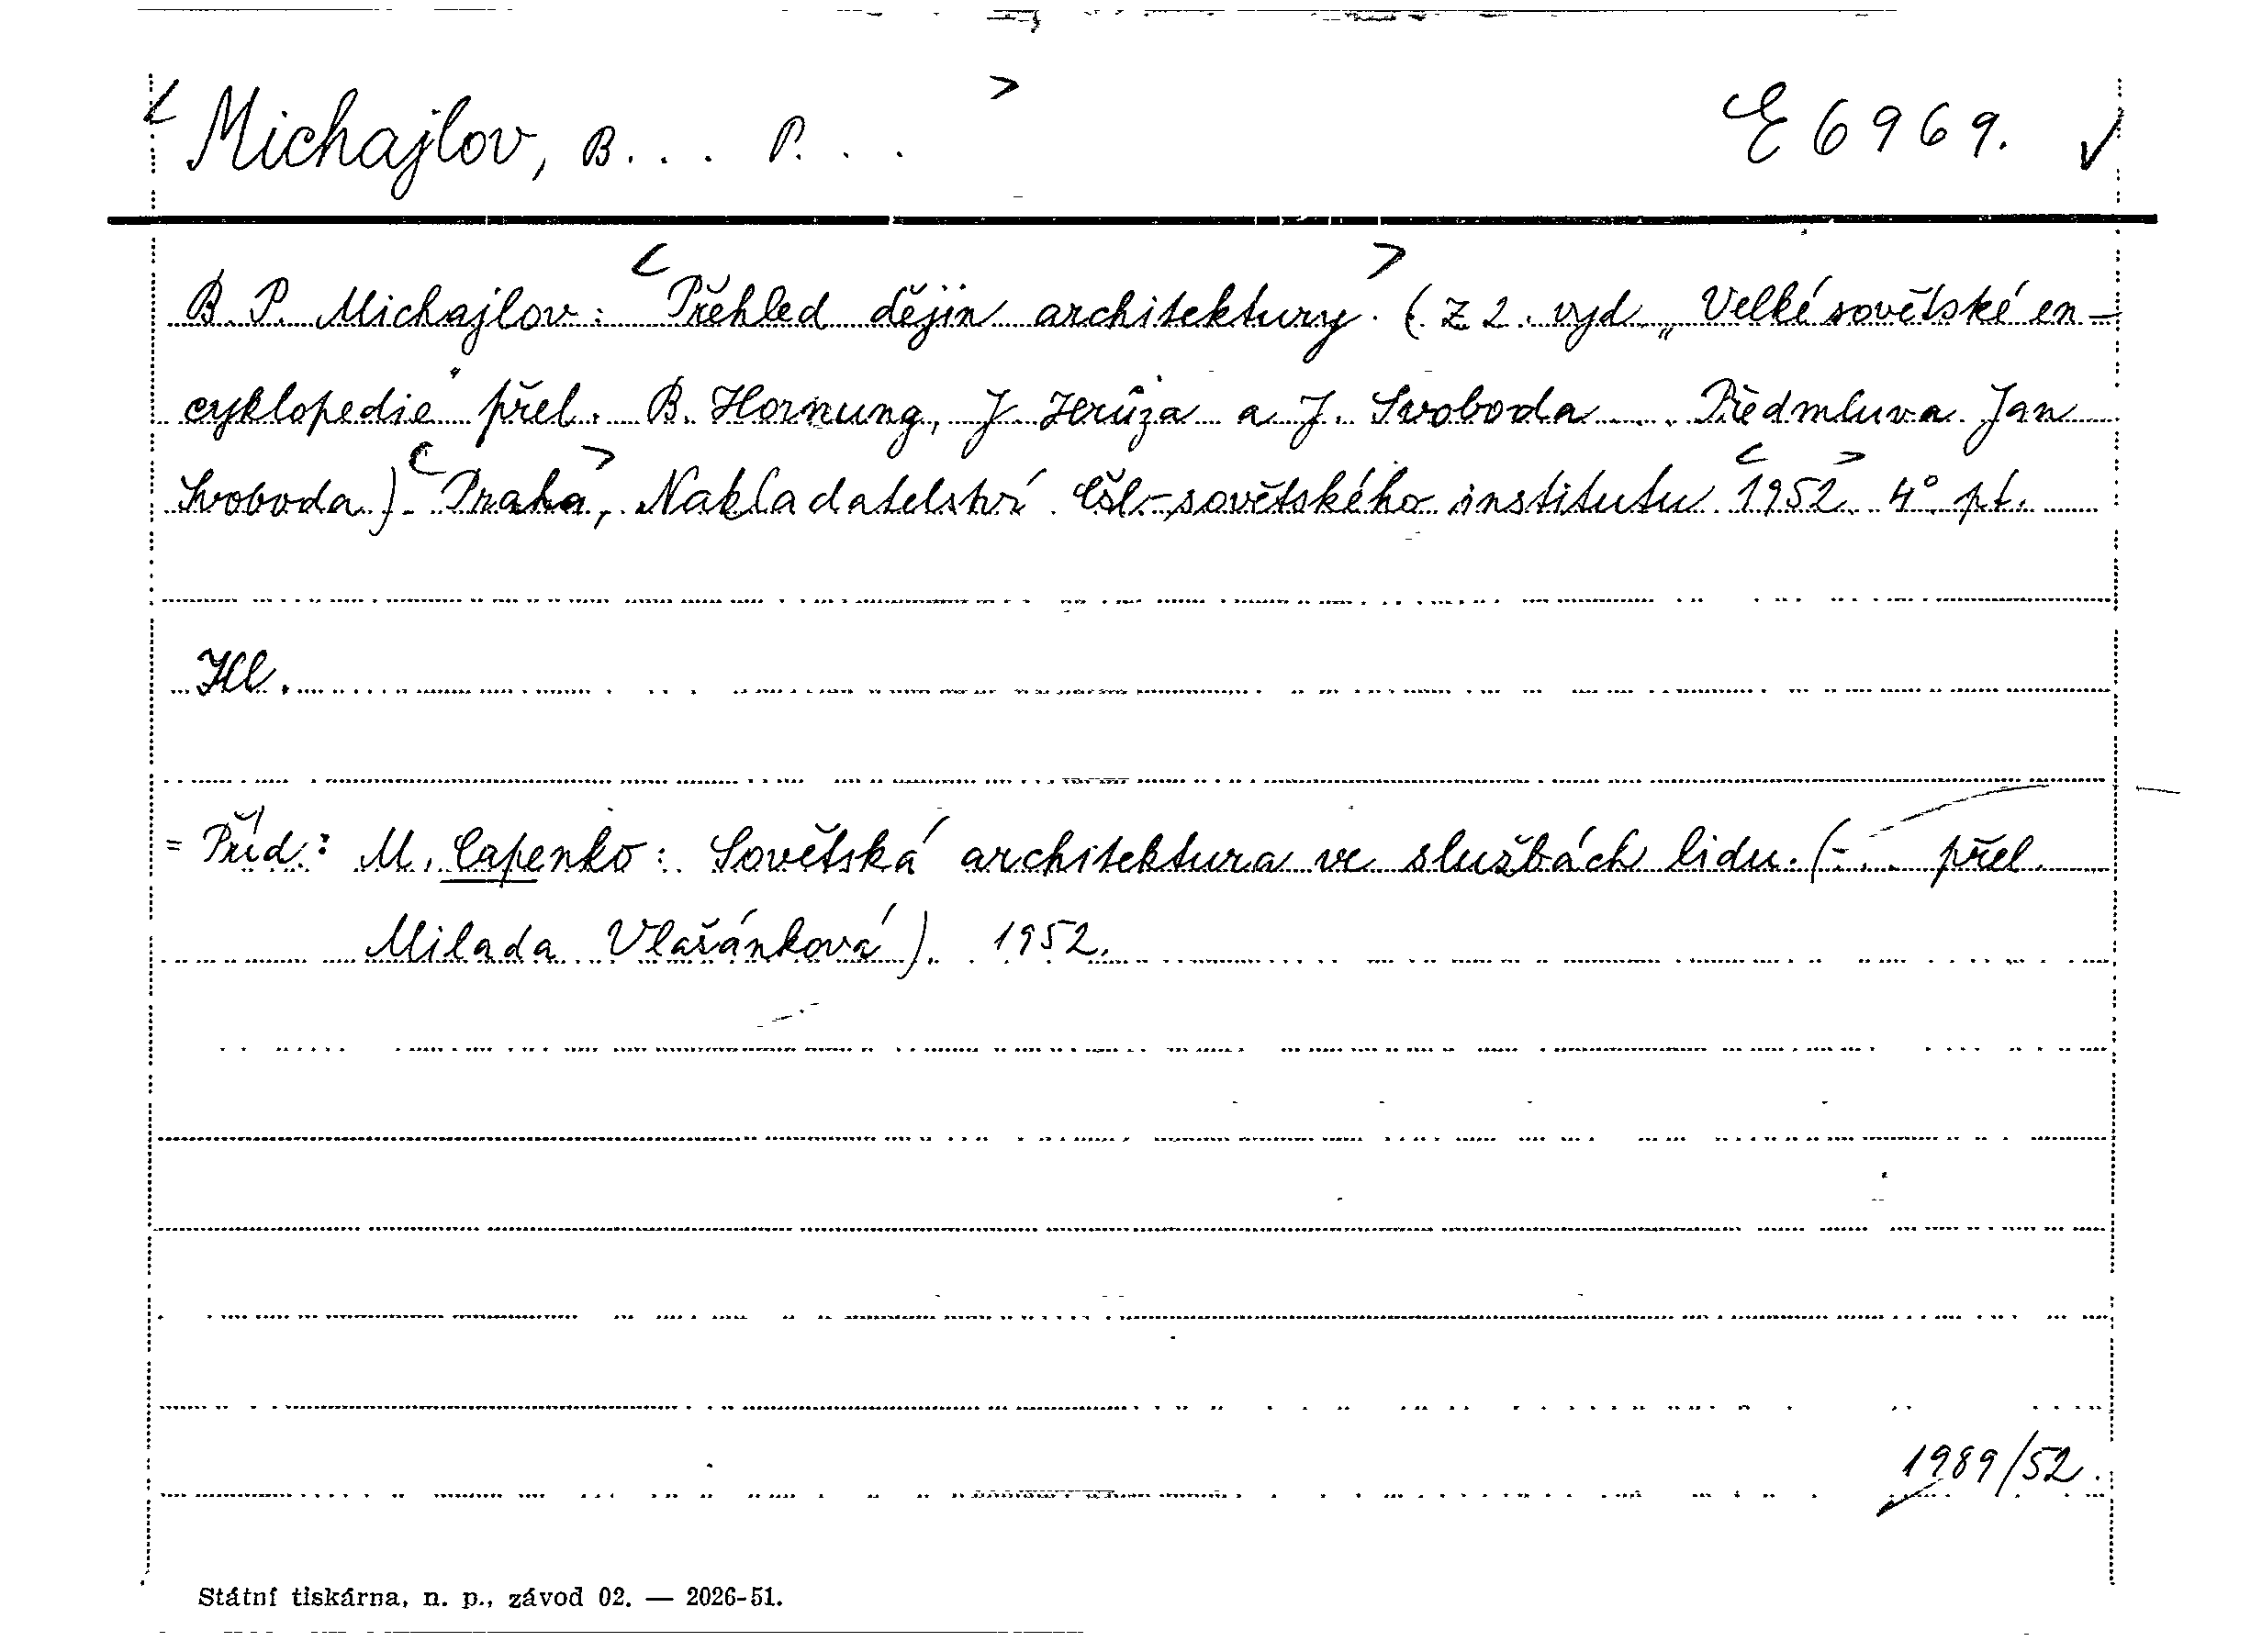 < Michajlov, B... P... > E 6969. ✓
B. P. Michajlov: <Přehled dějin architektury.> (Z 2. vyd. „Velké sovětské en-
cyklopedie" přel. B. Hornung, J. Herůza a J. Svoboda... Předmluva Jan
Svoboda). <Praha>, Nakladatelství Čsl.-sovětského institutu <1952>. 4° pt.
Il.
= Příd.: M. Capenko: Sovětská architektura ve službách lidu. (-... přel.
Milada Vlašánková). 1952.
1989/52.
Státní tiskárna, n. p., závod 02. — 2026-51.